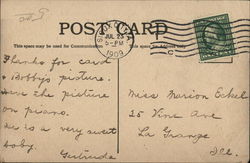 POST CARD
JUL 23
5-PM
1909
This space may be used for Communication
This space for Address only
Thanks for card
& Bobby's picture.
the picture
on piano.
He is a very sweet
baby.
Gertrude
Miss Marion Eckel
25 Vine Ave
La Grange
Ill.